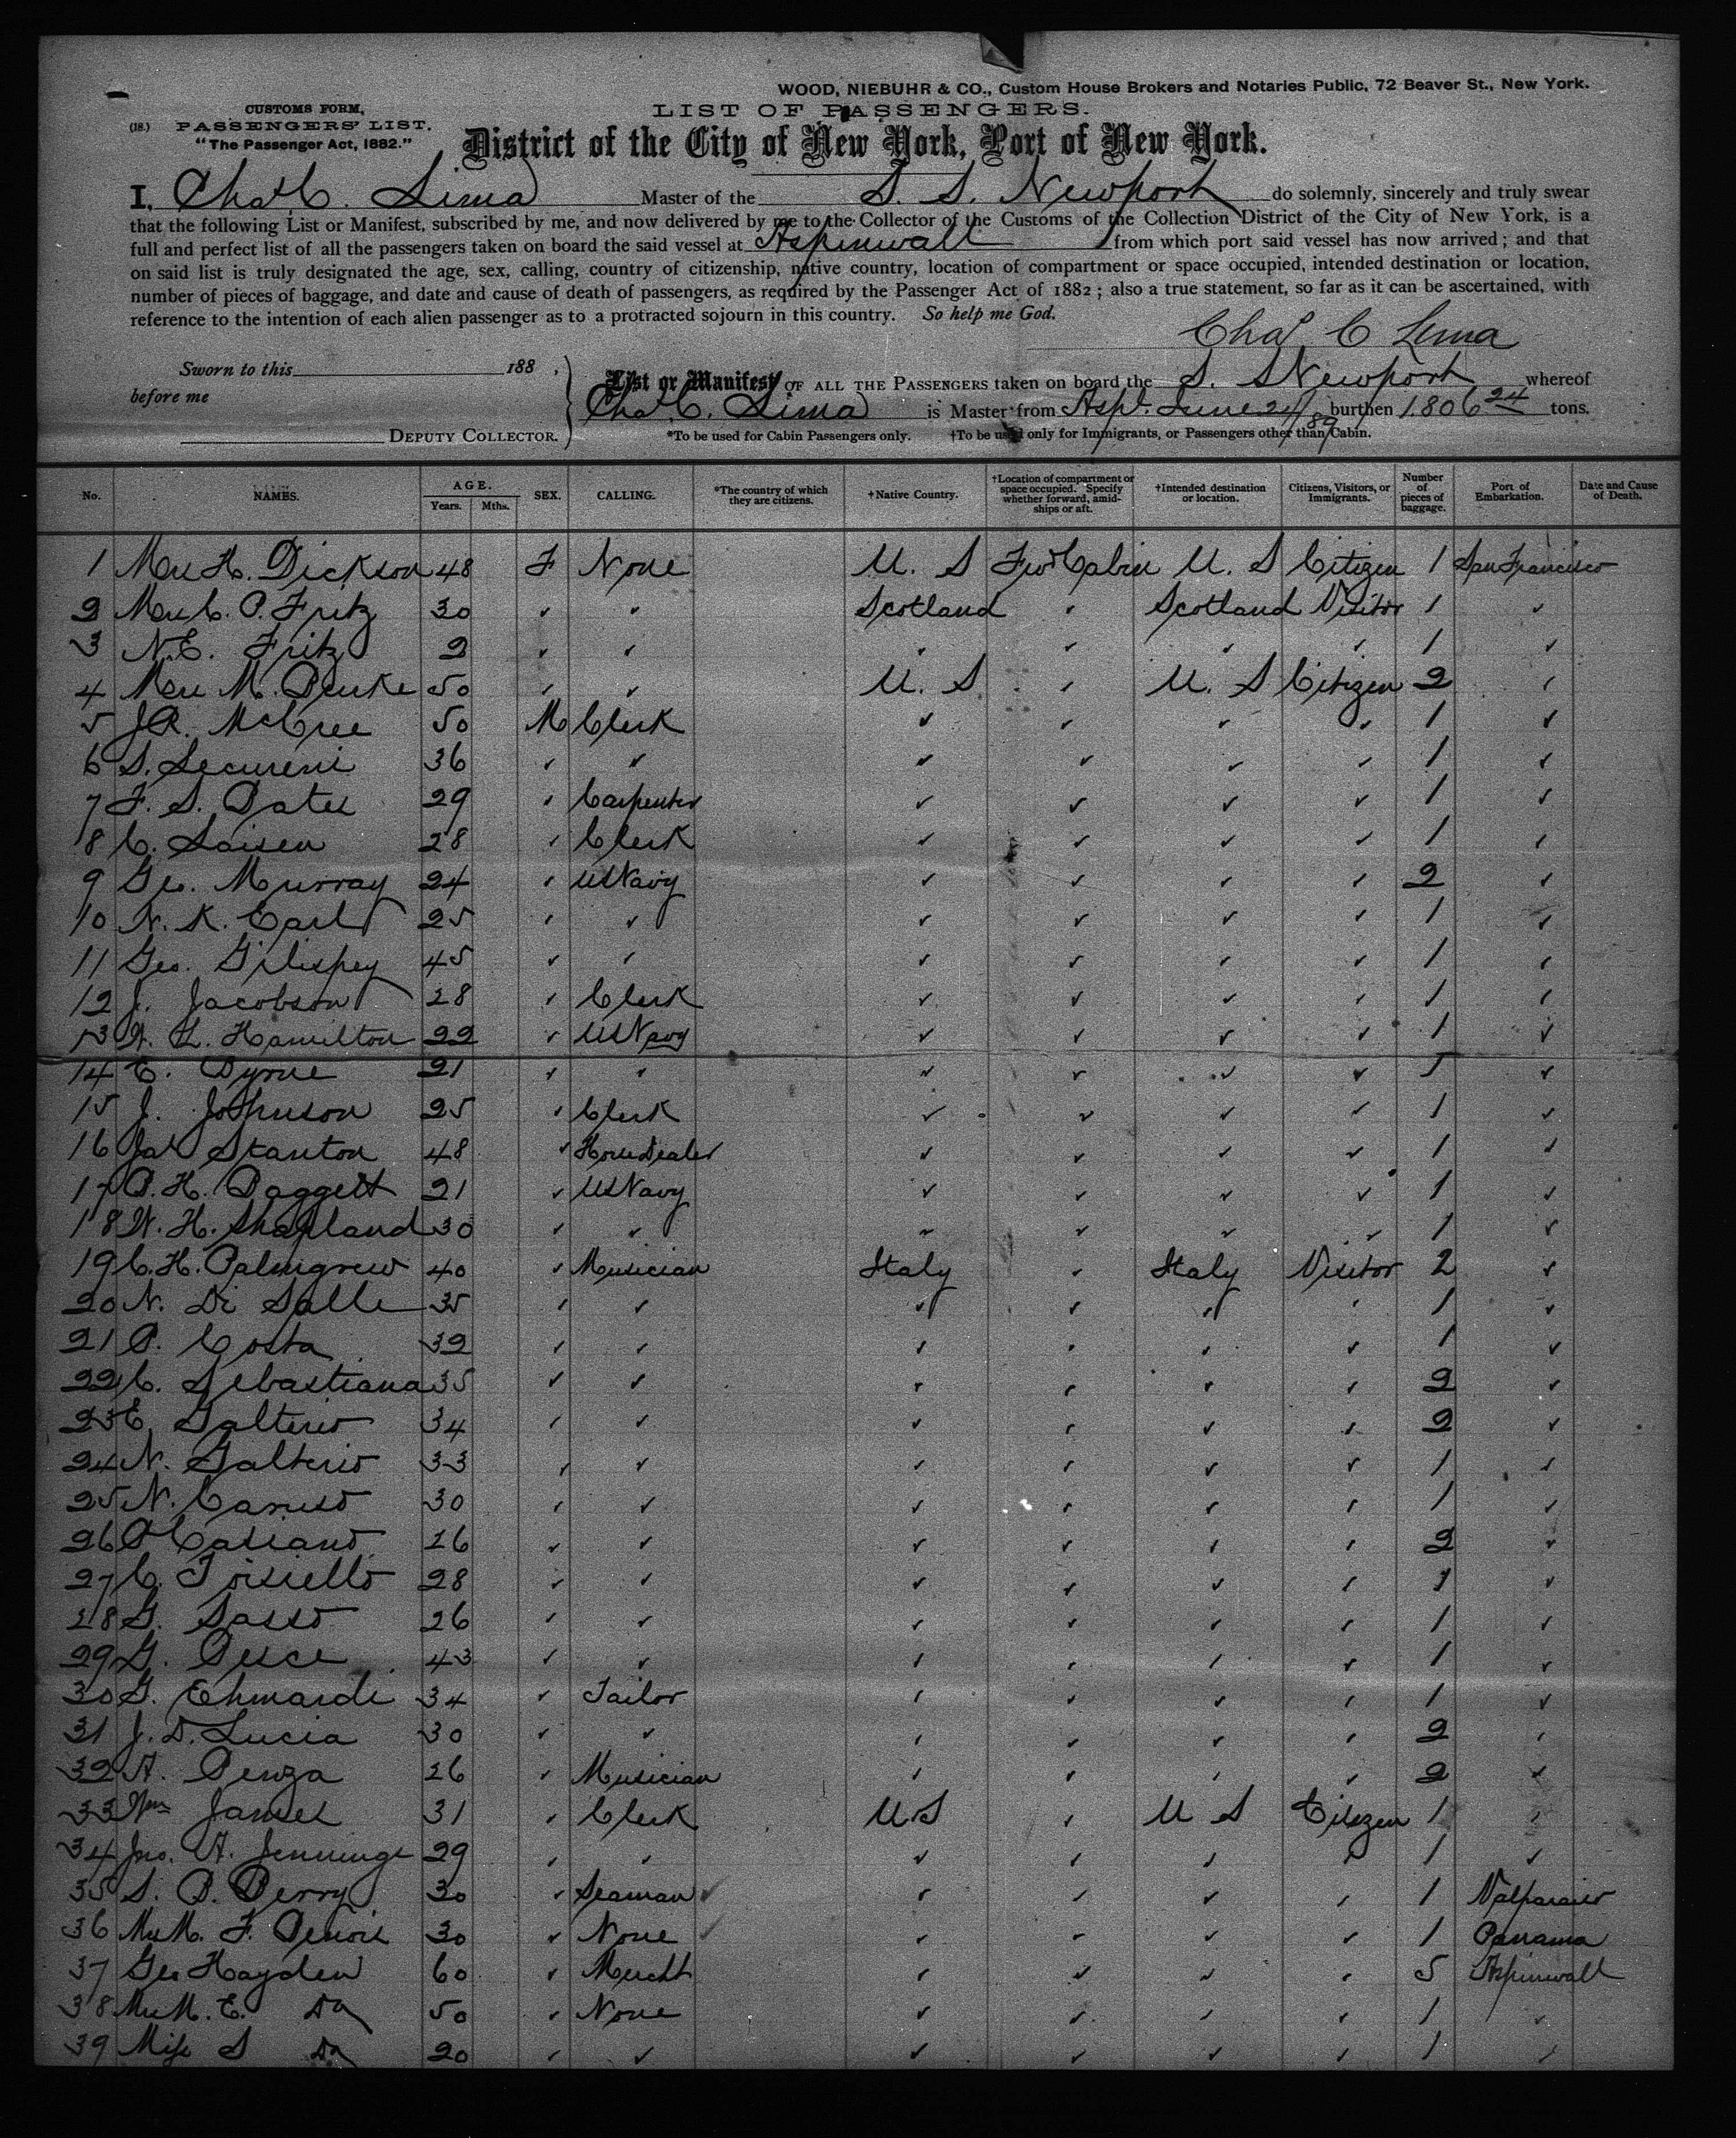 WOOD, NIEBUHR & CO., Custom House Brokers and Notaries Public, 72 Beaver St., New York.
CUSTOMS FORM,
LIST OF PASSENGERS.
(18.) PASSENGERS' LIST.
"The Passenger Act, 1882."
District of the City of New York, Port of New York.
I, Chas C. Lima Master of the S. S. Newport do solemnly, sincerely and truly swear
that the following List or Manifest, subscribed by me, and now delivered by me to the Collector of the Customs of the Collection District of the City of New York, is a
full and perfect list of all the passengers taken on board the said vessel at Aspinwall from which port said vessel has now arrived; and that
on said list is truly designated the age, sex, calling, country of citizenship, native country, location of compartment or space occupied, intended destination or location,
number of pieces of baggage, and date and cause of death of passengers, as required by the Passenger Act of 1882; also a true statement, so far as it can be ascertained, with
reference to the intention of each alien passenger as to a protracted sojourn in this country. So help me God.
Chas C Lima
Sworn to this 188 ,
before me
DEPUTY COLLECTOR.
List or Manifest OF ALL THE PASSENGERS taken on board the S. S Newport whereof
Chas C. Lima is Master from Aspl. June 24/89 burthen 1806 24 tons.
*To be used for Cabin Passengers only. †To be used only for Immigrants, or Passengers other than Cabin.
No. NAMES. AGE. Years. Mths. SEX. CALLING. *The country of which they are citizens. †Native Country. †Location of compartment or space occupied. Specify whether forward, amidships or aft. †Intended destination or location. Citizens, Visitors, or Immigrants. Number of pieces of baggage. Port of Embarkation. Date and Cause of Death.
1 Mrs H. Dickson 48 F None U. S Fwd Cabin U. S Citizen 1 San Francisco
2 Mrs C. P. Fritz 30 " " Scotland " Scotland Visitor 1 "
3 N. E. Fritz 2 " " " " " " 1 "
4 Mrs M. 50 " " U. S " U. S Citizen 2 "
5 J. R. McCree 50 M Clerk " " " " 1 "
6 S. 36 " " " " " " 1 "
7 F. S. Bates 29 " Carpenter " " " " 1 "
8 C. 28 " Clerk " " " " 1 "
9 Geo. Murray 24 " US Navy " " " " 2 "
10 N. K. Earl 25 " " " " " " 1 "
11 Geo. Gilispey 45 " " " " " " 1 "
12 J. Jacobson 28 " Clerk " " " " 1 "
13 W. L. Hamilton 22 " US Navy " " " " 1 "
14 E. Byrne 21 " " " " " " 1 "
15 J. Johnson 25 " Clerk " " " " 1 "
16 Jas Stanton 48 " Horse Dealer " " " " 1 "
17 P. H. Baggett 21 " US Navy " " " " 1 "
18 W. H. Shapland 30 " " " " " " 1 "
19 C. H. Palmgrew 40 " Musician Italy " Italy Visitor 2 "
20 N. Di Salle 35 " " " " " " 1 "
21 P. Costa 32 " " " " " " 1 "
22 C. Sebastiana 35 " " " " " " 2 "
23 E. Galterio 34 " " " " " " 2 "
24 N. Galterio 33 " " " " " " 1 "
25 N. Caruso 30 " " " " " " 1 "
26 P. Cassano 26 " " " " " " 2 "
27 C. Torsiello 28 " " " " " " 1 "
28 G. Sasso 26 " " " " " " 1 "
29 G. Pesce 43 " " " " " " 1 "
30 G. Ehmardi 34 " Tailor " " " " 1 "
31 J. D. Lucia 30 " " " " " " 2 "
32 A. Penza 26 " Musician " " " " 2 "
33 Wm James 31 " Clerk U.S " U S Citizen 1 "
34 Jno. A. Jennings 29 " " " " " " 1 "
35 S. B. Berry 30 " Seaman " " " " 1 Valparaiso
36 Mrs M. F. 30 " None " " " " 1 Panama
37 Geo Hayden 60 " Mercht " " " " 5 Aspinwall
38 Mrs M. E. Do 50 " None " " " " 1 "
39 Miss S Do 20 " " " " " " 1 "